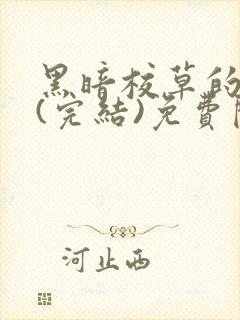 黑暗校草的
(完結)免費
河止西